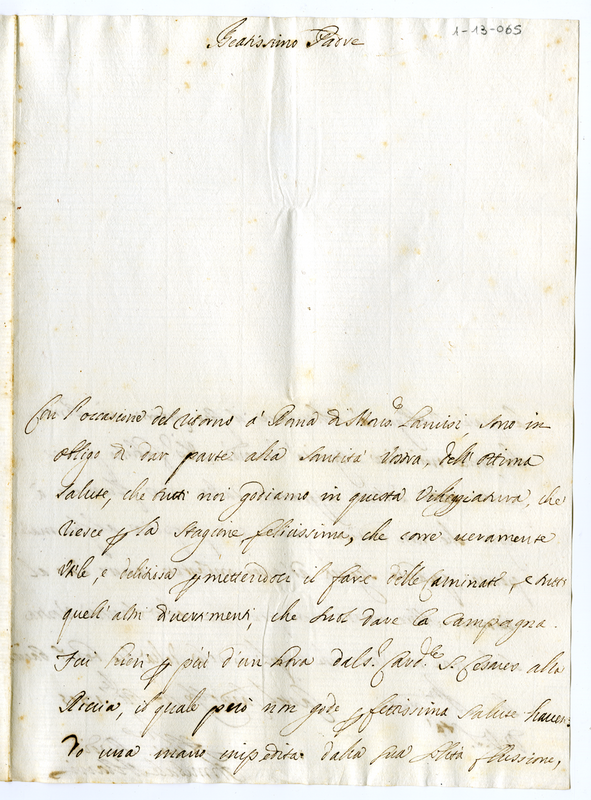 1-13-065
Beatissimo Padre
Con l'occasione del ritorno à Roma di Mons.e Lancisi sono in
obligo di dar parte alla Santità Vostra, dell'ottima
salute, che tutti noi godiamo in questa Villeggiatura, che
riesce p la stagione felicissima, che corre veramente
utile, e delitiosa pmettendoci il fare delle Caminate, e tutti
quell'altri divertimenti, che suol dare la Campagna.
Fui hieri p più d'un hora dal S.r Card.le S. Cesareo alla
Riccia, il quale però non gode pfettissima salute haven-
do una mano impedita dalla sua solita flussione,